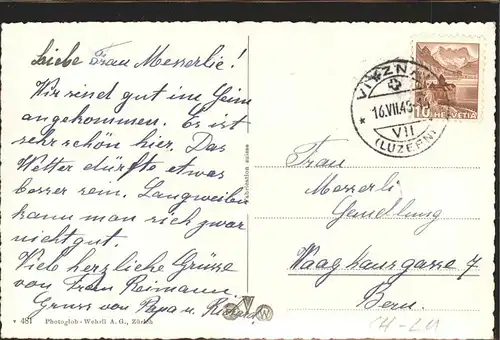 Liebe Frau Messerlie!
Wir sind gut im Heim
angekommen. Es ist
sehr schön hier. Das
Wetter dürfte etwas
besser sein. Langweilen
kann man sich zwar
nicht gut.
Viele herzliche Grüsse
von Frau Reimann
Gruss von Papa u. Richard
* 481 Photoglob-Wehrli A. G., Zürich
Fabrication suisse
VITZNAU
16.VII.43
VII
(LUZERN)
10 HELVETIA
Frau
Messerli
Handlung
Waaghausgasse 7
Bern.
CH-LU